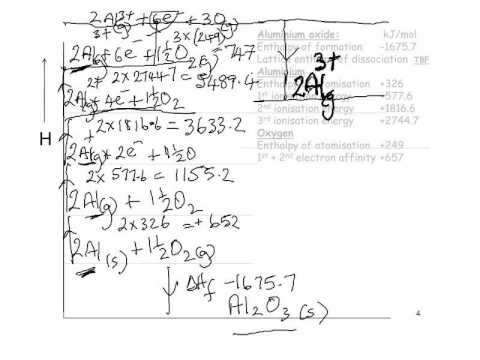 2Al³⁺(g) + 6e⁻ + 3O(g)
3×(249)(g) = 747
2Al³⁺(g) + 6e + 1½O₂(g)
2×2744.7 = 5489.4
2Al²⁺(g) + 4e⁻ + 1½O₂
2×1816.6 = 3633.2
2Al⁺(g) + 2e⁻ + 1½O
2×577.6 = 1155.2
2Al(g) + 1½O₂
2×326 = +652
2Al(s) + 1½O₂(g)
ΔHf -1675.7
Al₂O₃(s)
H
2Al³⁺(g)
Aluminium oxide: kJ/mol
Enthalpy of formation -1675.7
Lattice enthalpy of dissociation TBF
Aluminium
Enthalpy of atomisation +326
1st ionisation energy +577.6
2nd ionisation energy +1816.6
3rd ionisation energy +2744.7
Oxygen
Enthalpy of atomisation +249
1st + 2nd electron affinity +657
4